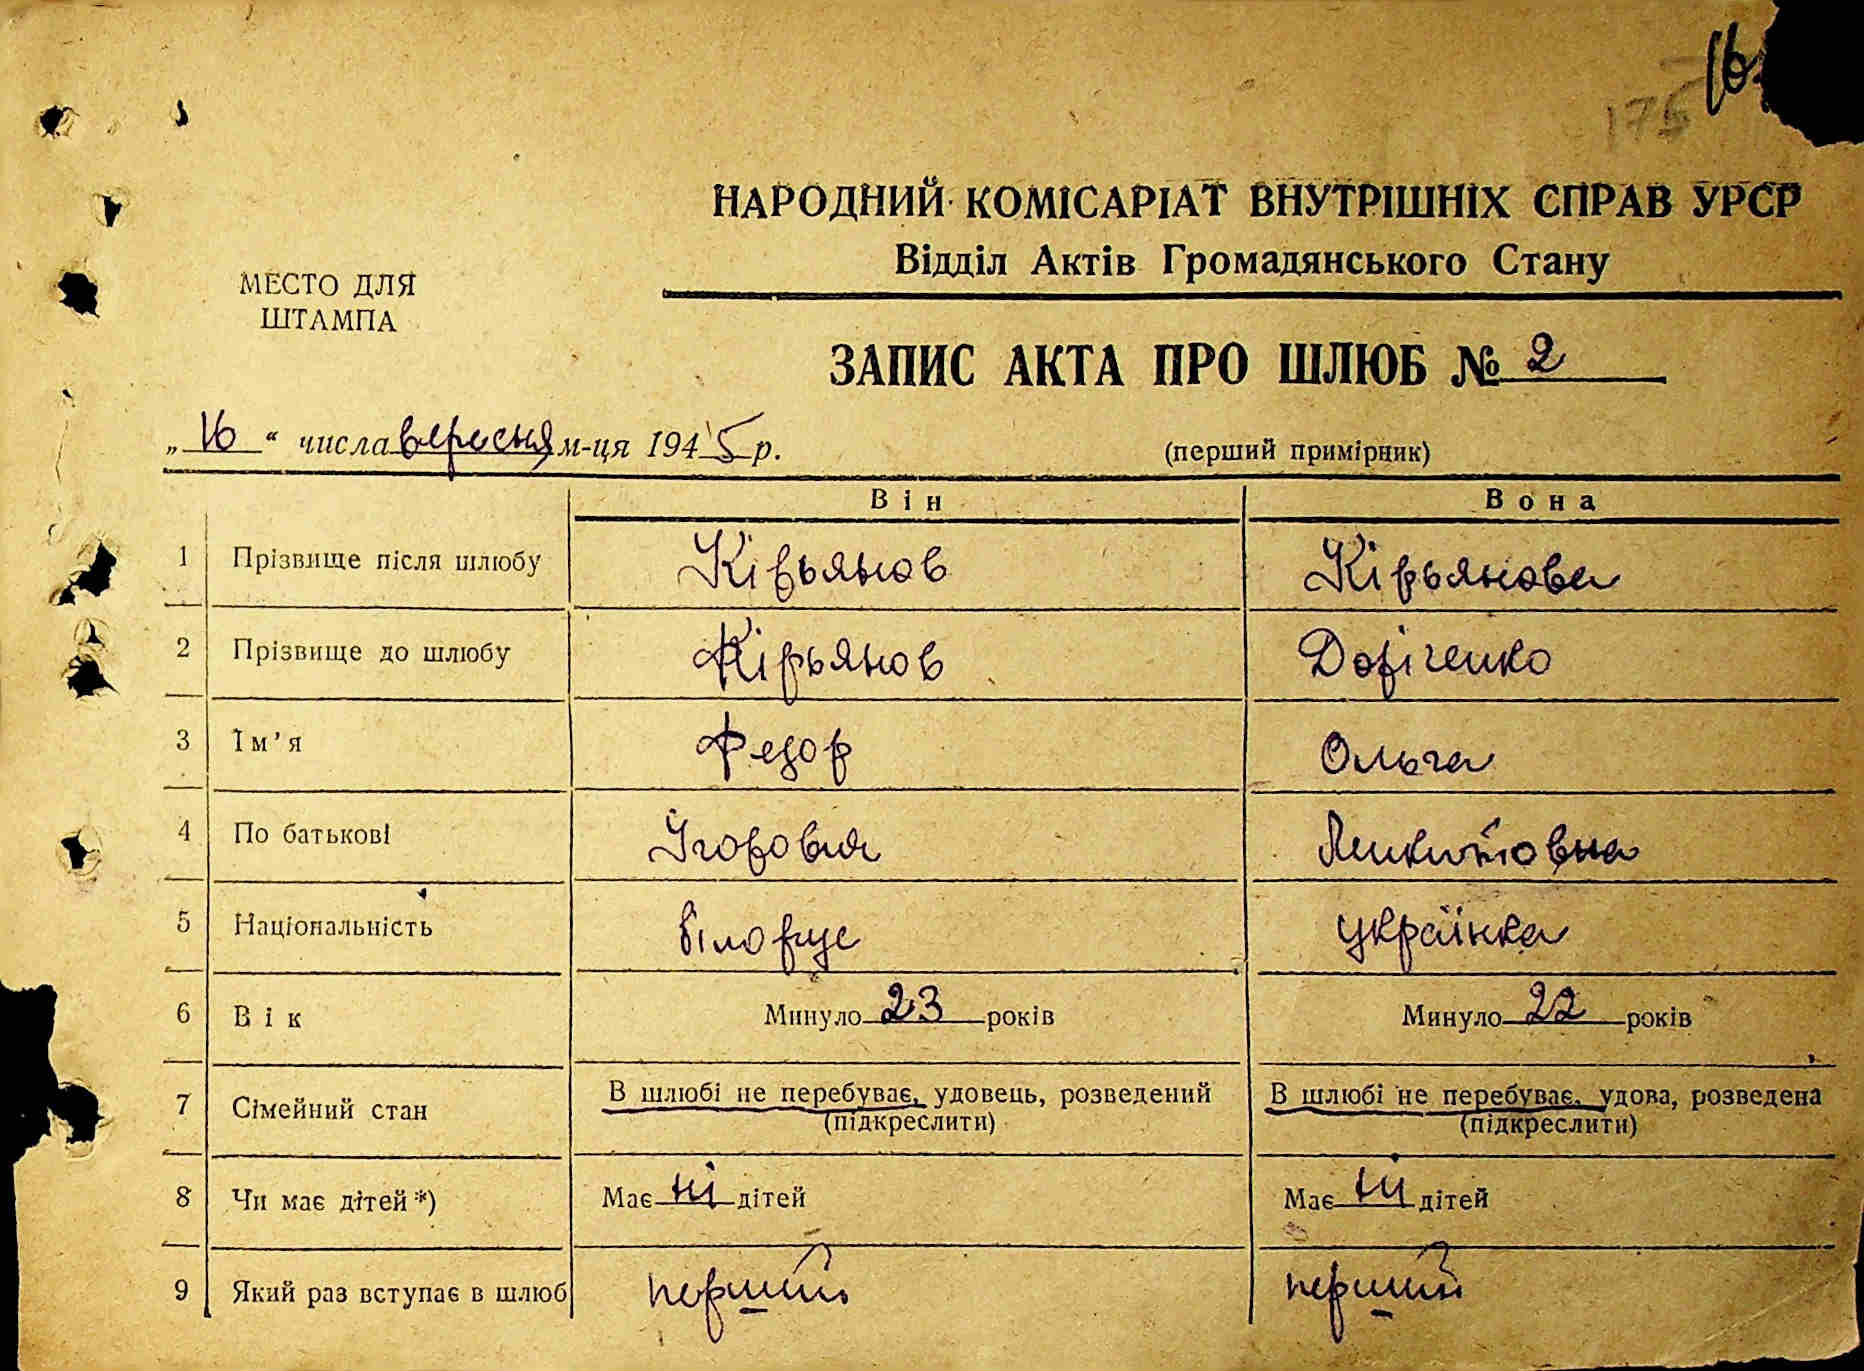 16
175
НАРОДНИЙ КОМІСАРІАТ ВНУТРІШНІХ СПРАВ УРСР
Відділ Актів Громадянського Стану
МЕСТО ДЛЯ
ШТАМПА
ЗАПИС АКТА ПРО ШЛЮБ № 2
„16“ числа вересня м-ця 1945 р.
(перший примірник)
Він Вона
1 Прізвище після шлюбу Кірьянов Кірьянова
2 Прізвище до шлюбу Кірьянов
3 Ім'я Федор Ольга
4 По батькові
5 Національність білорус українка
6 Вік Минуло 23 років Минуло 22 років
7 Сімейний стан В шлюбі не перебуває, удовець, розведений В шлюбі не перебуває, удова, розведена
(підкреслити) (підкреслити)
8 Чи має дітей*) Має ні дітей Має ні дітей
9 Який раз вступає в шлюб перший перший